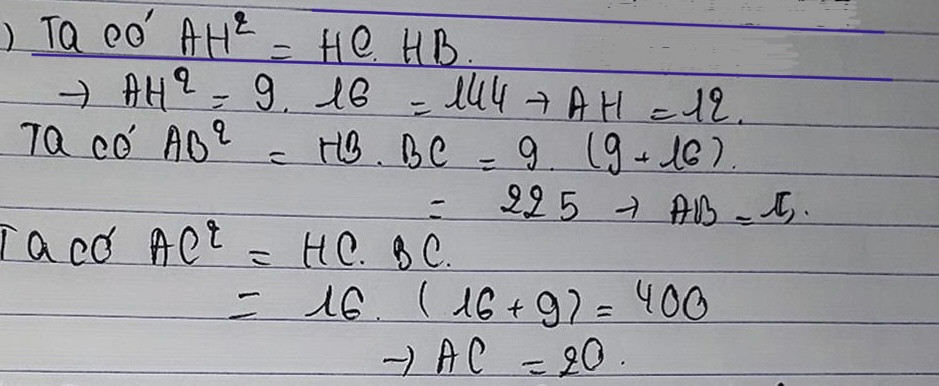 ) Ta có AH² = HC. HB.
→ AH² = 9. 16 = 144 → AH = 12.
Ta có AB² = HB. BC = 9. (9+16).
= 225 → AB = 15.
Ta có AC² = HC. BC.
= 16. (16+9) = 400
→ AC = 20.